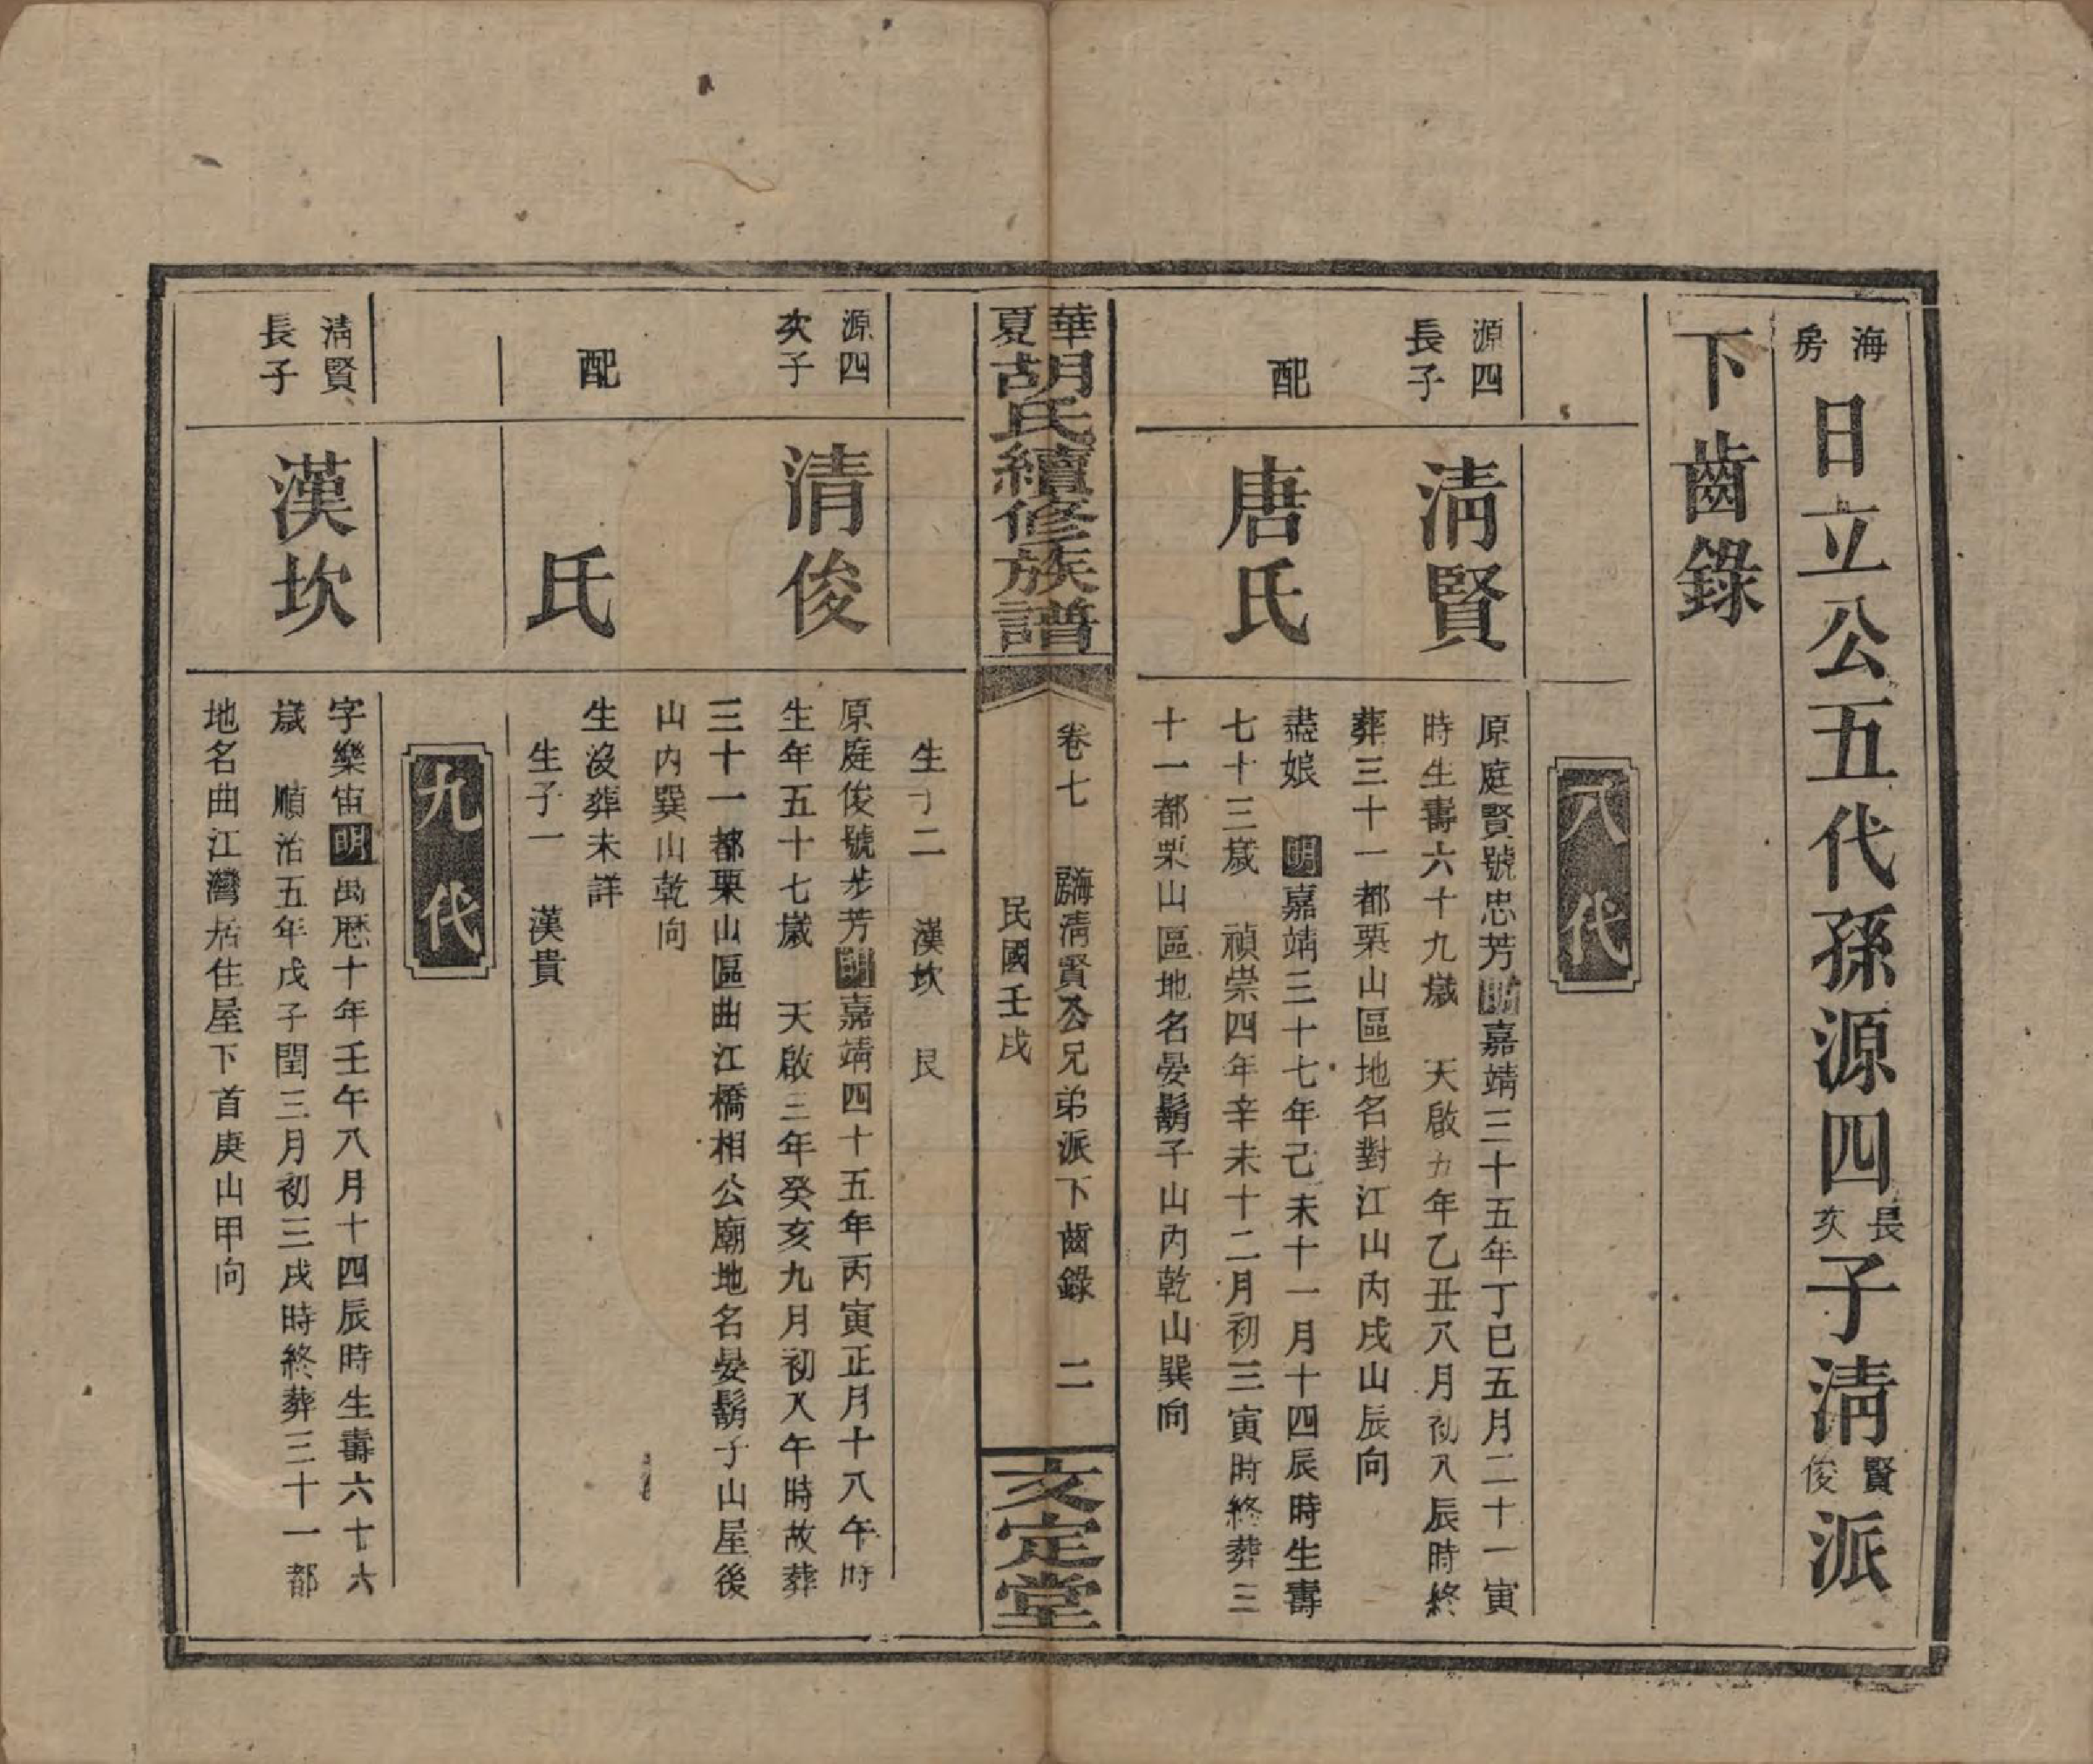 海房日立公五代孫源四長次子清賢俊派
下齒錄
八代
源四長子
清賢
原庭賢號忠芳明嘉靖三十五年丁巳五月二十一寅
時生壽六十九歲　天啟五年乙丑八月初八辰時終
葬三十一都栗山區地名對江山內戌山辰向
配
唐氏
盡娘　明嘉靖三十七年己未十一月十四辰時生壽
七十三歲　禎崇四年辛未十二月初三寅時終葬三
十一都栗山區地名晏鬍子山內乾山巽向
華夏胡氏續修族譜
卷七　海房清賢俊公兄弟派下齒錄　二
民國壬戌
文定堂
生子二　漢坎　艮
源四次子
清俊
原庭俊號步芳明嘉靖四十五年丙寅正月十八午時
生年五十七歲　天啟三年癸亥九月初八午時故葬
三十一都栗山區曲江橋相公廟地名晏鬍子山屋後
山內巽山乾向
配
氏
生沒葬未詳
生子一　漢貴
九代
清賢長子
漢坎
字樂宙明萬歷十年壬午八月十四辰時生壽六十六
歲　順治五年戊子閏三月初三戌時終葬三十一都
地名曲江灣居住屋下首庚山甲向